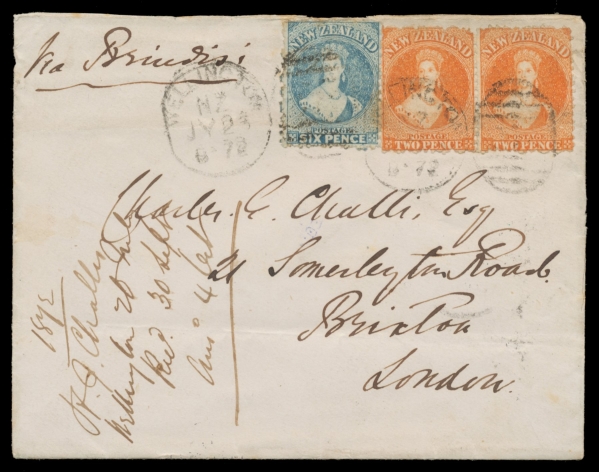 Via Brindisi
NEW ZEALAND
POSTAGE
SIX PENCE
NEW ZEALAND
POSTAGE
TWO PENCE
NEW ZEALAND
POSTAGE
TWO PENCE
WELLINGTON
NZ
JY 24
72
72
Charles G. Challis, Esq
21 Somerleyton Road.
Brixton
London.
1872
H. J. Challis
Wellington 20 July
Recd. 30 Sept
Ans 4 Oct